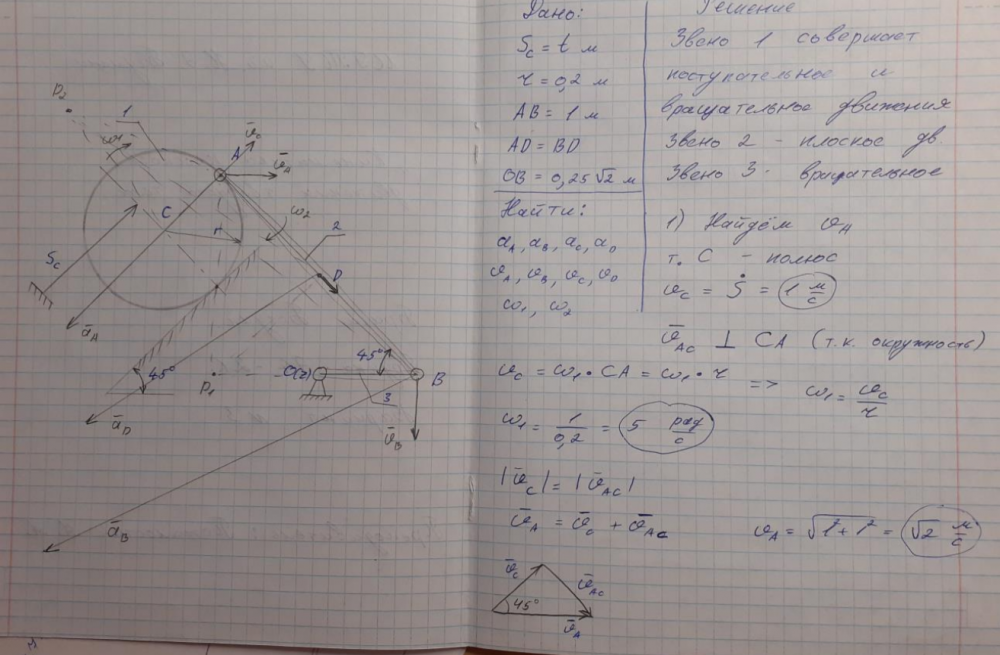 P₂
1
ω₁
A
v̄_C
v̄_A
ω₂
2
C
r
S_C
D
ā_A
45°
45°
P₁
O(z)
B
3
ā_D
v̄_B
ā_B
Дано:
S_C = t м
r = 0,2 м
AB = 1 м
AD = BD
OB = 0,25 √2 м
Найти:
a_A, a_B, a_C, a_D
v_A, v_B, v_C, v_D
ω₁, ω₂
Решение
Звено 1 совершает
поступательное и
вращательное движения
Звено 2 - плоское дв.
Звено 3 - вращательное
1) Найдём v_A
т. C - полюс
v_C = Ṡ = 1 м/с
v̄_AC ⊥ CA (т.к. окружность)
v_C = ω₁ • CA = ω₁ • r => ω₁ = v_C/r
ω₁ = 1/0,2 = 5 рад/с
|v̄_C| = |v̄_AC|
v̄_A = v̄_C + v̄_AC v_A = √(1² + 1²) = √2 м/с
v̄_C
v̄_AC
45°
v̄_A